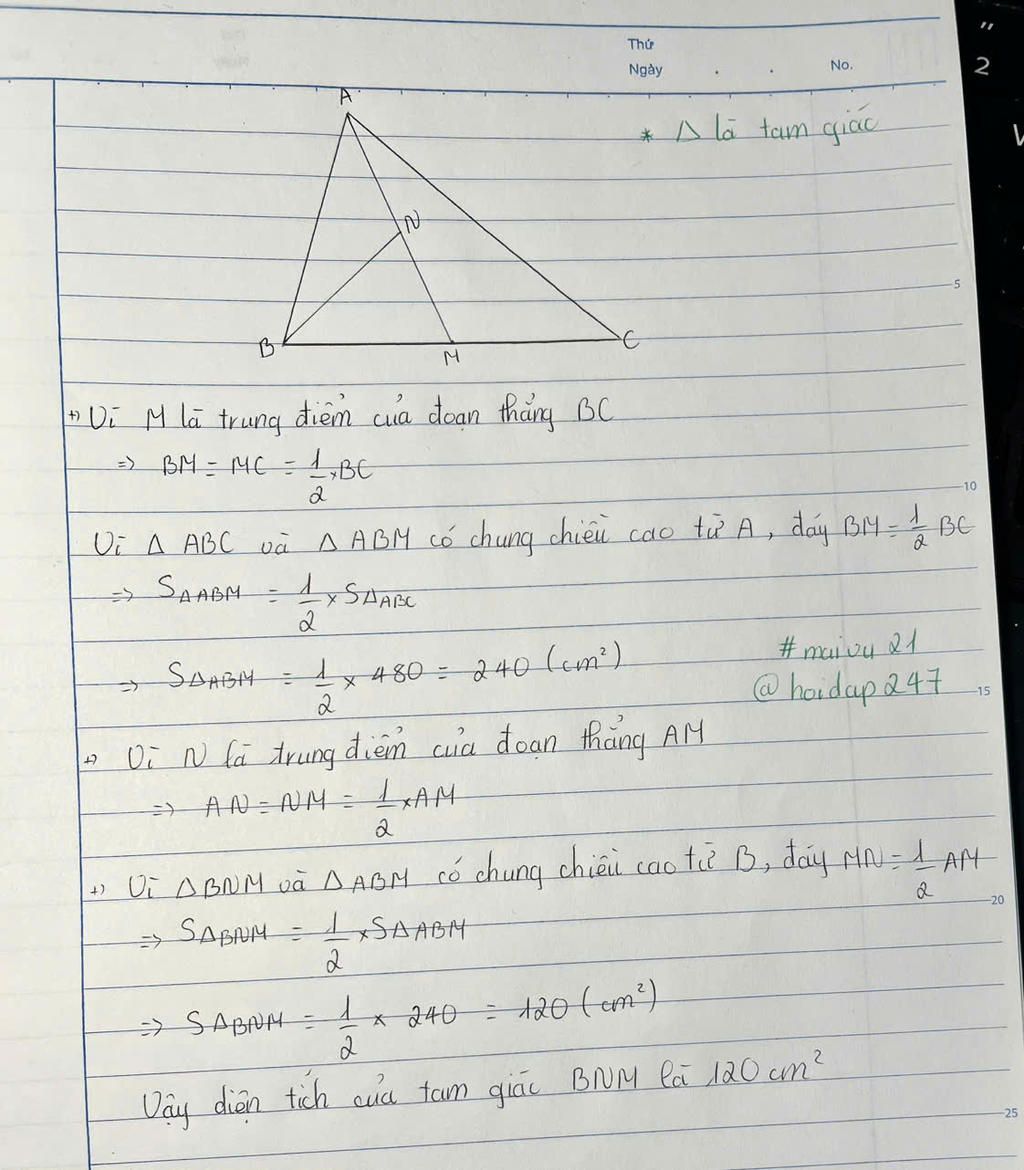 Thứ
Ngày . . No.
"
2
A
* Δ là tam giác
N
5
B
M
C
+) Vì M là trung điểm của đoạn thẳng BC
=> BM = MC = 1/2 × BC
10
Vì Δ ABC và Δ ABM có chung chiều cao từ A, đáy BM = 1/2 BC
=> SΔABM = 1/2 × SΔABC
=> SΔABM = 1/2 × 480 = 240 (cm²)
# maivy 21
@ hoidap 247
15
+) Vì N là trung điểm của đoạn thẳng AM
=> AN = NM = 1/2 × AM
+) Vì ΔBNM và ΔABM có chung chiều cao từ B, đáy MN = 1/2 AM
20
=> SΔBNM = 1/2 × SΔABM
=> SΔBNM = 1/2 × 240 = 120 (cm²)
Vậy diện tích của tam giác BNM là 120 cm²
25